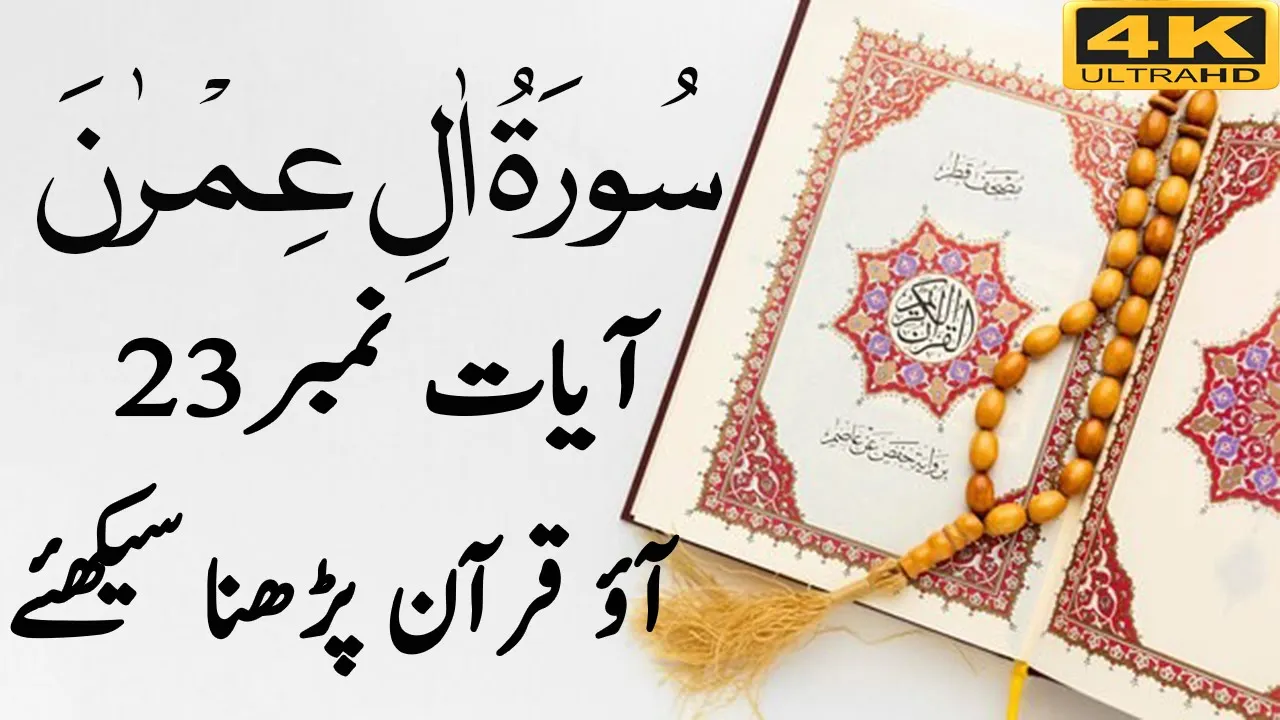 سُورَةُ اٰلِ عِمْرٰنَ
آیات نمبر 23
آؤ قرآن پڑھنا سیکھئے
4K
ULTRA HD
مصحف قطر
القرآن الكريم
برواية حفص عن عاصم